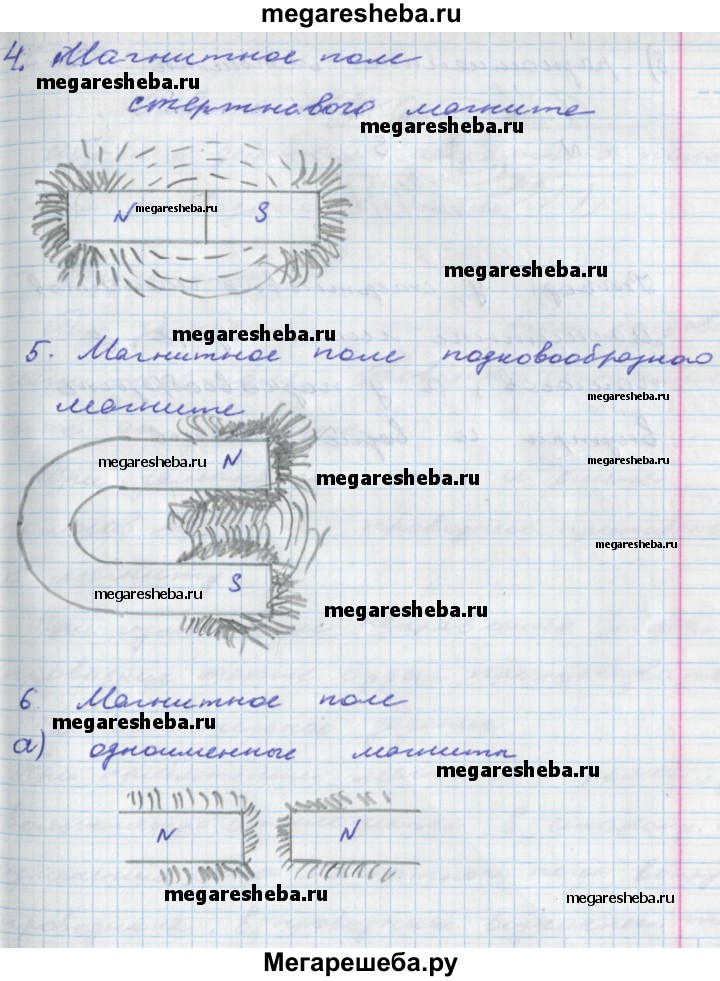 megaresheba.ru
4. Магнитное поле
megaresheba.ru
стержнового магните
megaresheba.ru
N megaresheba.ru S
megaresheba.ru
megaresheba.ru
5. Магнитное поле подковообразного
megaresheba.ru
магните
megaresheba.ru N megaresheba.ru
megaresheba.ru
megaresheba.ru
megaresheba.ru S
megaresheba.ru
6 Магнитное поле
megaresheba.ru
а) одноименные магниты
megaresheba.ru
N N
megaresheba.ru
megaresheba.ru
Мегарешеба.ру